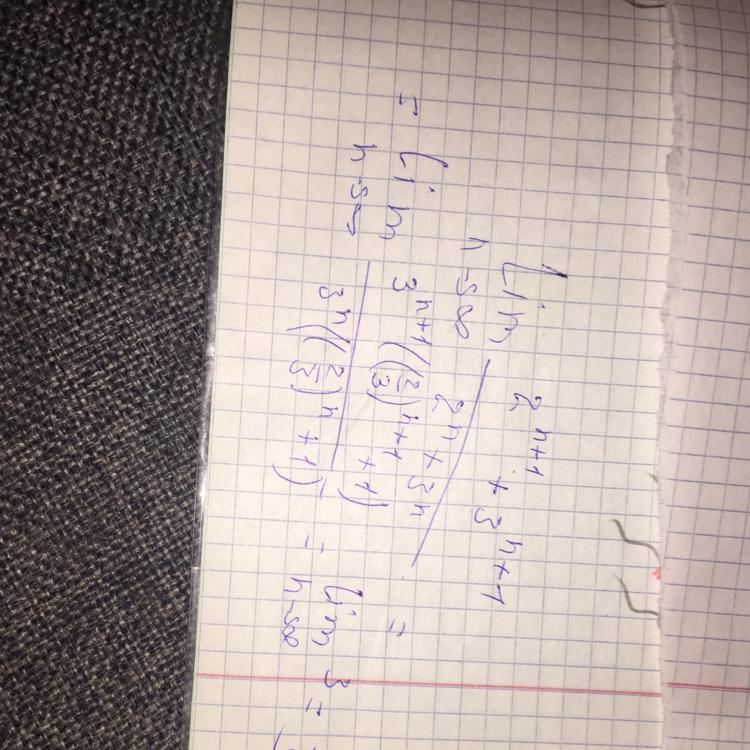 lim n→∞ (2^{n+1} + 3^{n+1}) / (2^n + 3^n) =
= lim n→∞ 3^{n+1}((2/3)^{n+1} + 1) / 3^n((2/3)^n + 1) = lim n→∞ 3 =